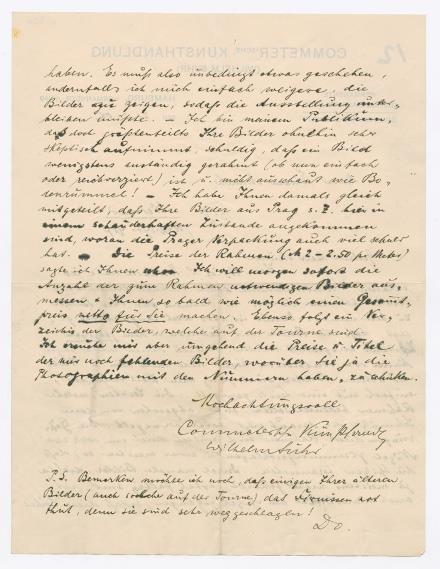 haben. Es muß also unbedingt etwas geschehen,
andernfalls ich mich einfach weigere, die
Bilder zu zeigen, sodaß die Ausstellung unter-
bleiben müßte. – Ich bin meinem Publikum,
das doch größtenteils Ihre Bilder ohnhin sehr
skeptisch aufnimmt, schuldig, daß ein Bild
wenigstens anständig gerahmt (ob nun einfach
oder reichverziert) ist u. nicht ausschaut wie Bo-
denrummel! – Ich habe Ihnen damals gleich
mitgeteilt, daß Ihre Bilder aus Prag s. Z. hier in
einem schauderhaften Zustande angekommen
sind, woran die Prager Verpackung auch viel schuld
hat. – Die Preise der Rahmen (M 2 – 2.50 pr Meter)
sagte ich Ihnen schon. Ich will morgen sofort die
Anzahl der zum Rahmen notwendigen Bilder aus-
messen & Ihnen so bald wie möglich einen Gesamt-
preis netto für Sie machen. Ebenso folgt ein Ver-
zeichnis der Bilder, welche auf der Tournee sind.
Ich ersuche mir aber umgehend die Preise u. Titel
der mir noch fehlenden Bilder, worüber Sie ja die
Photographien mit den Nummern haben, zuschicken.
Hochachtungsvoll
Commetersche Kunsthandlg
Wilhelm Suhr
P.S. Bemerken möchte ich noch, daß einigen Ihrer älteren
Bilder (auch solche auf der Tournee) das Firnissen not
thut, denn sie sind sehr weggeschlagen!
D. o.
COMMETER'SCHE KUNSTHANDLUNG
12